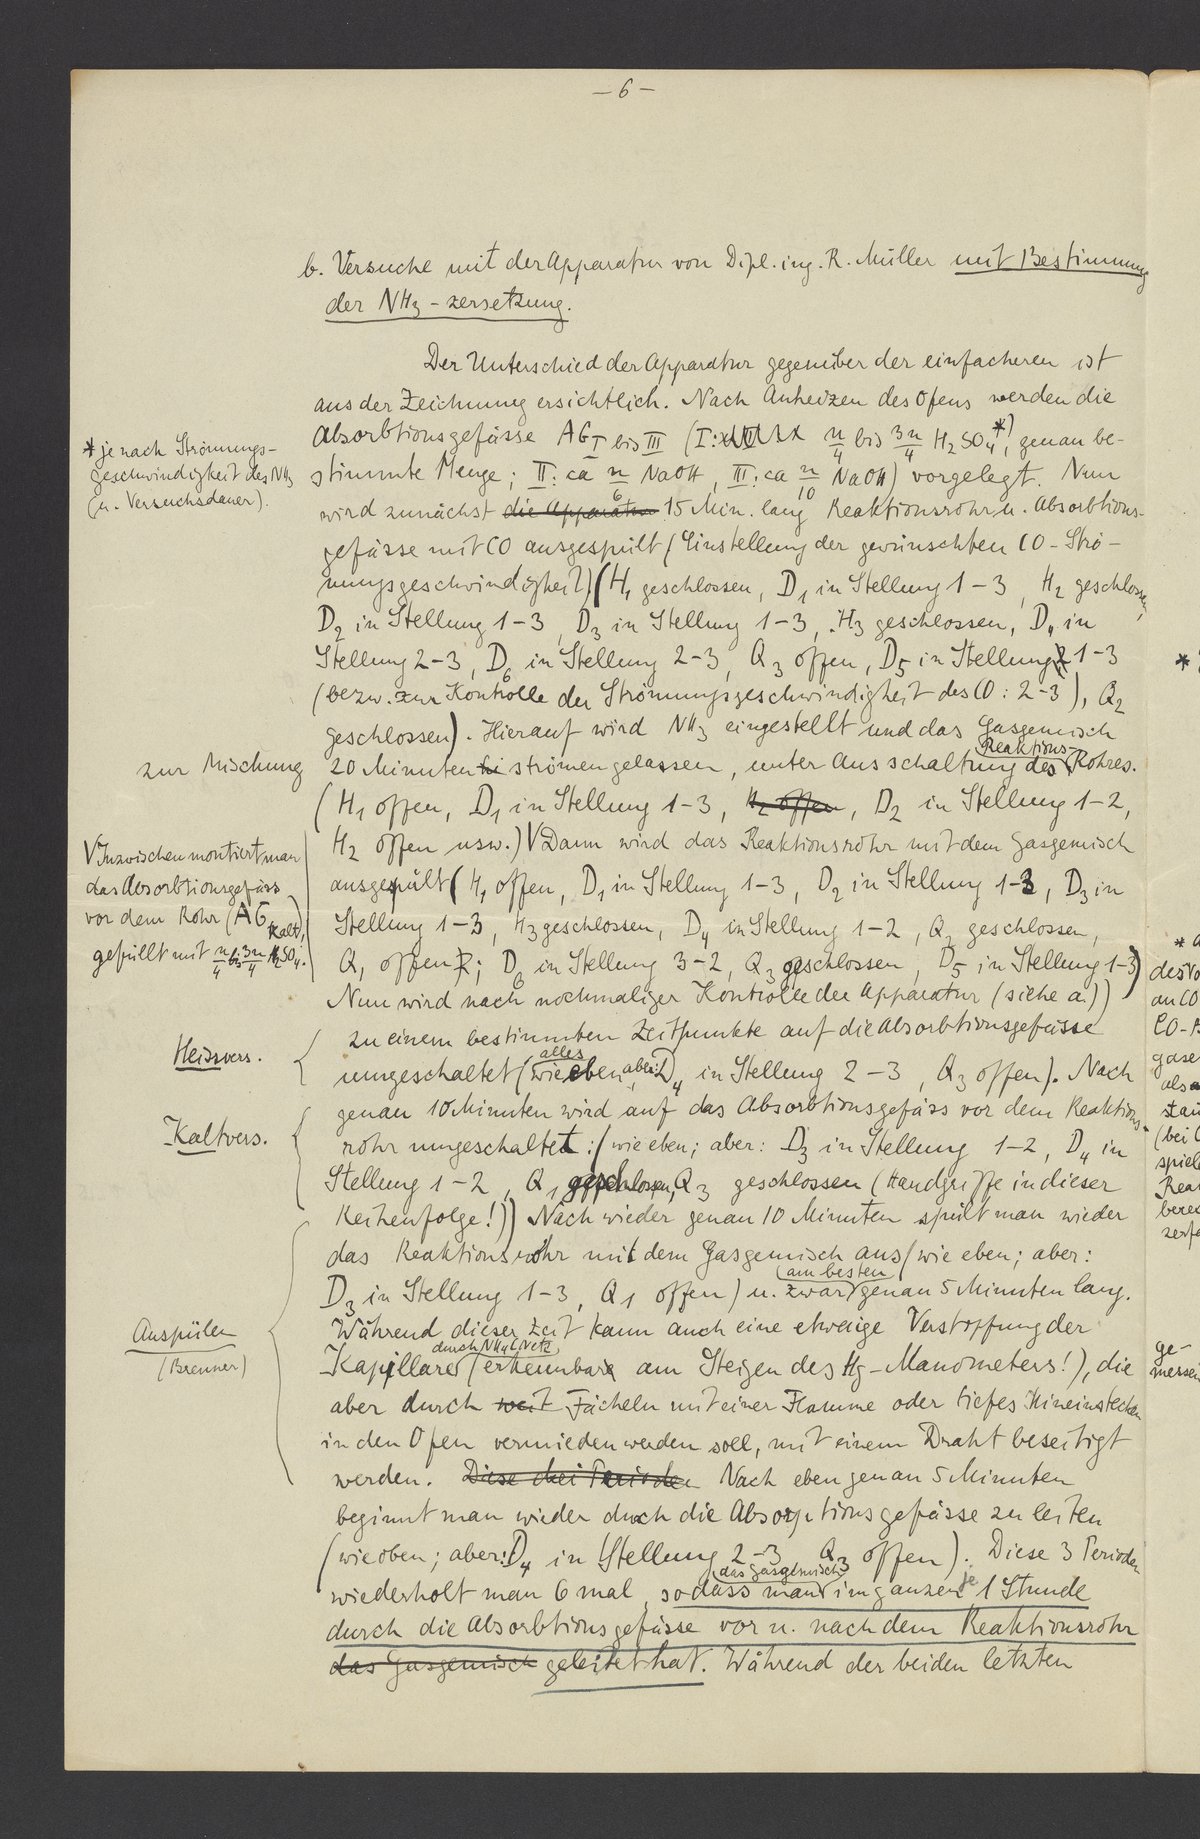 – 6 –
b. Versuche mit der Apparatur von Dipl. ing. R. Müller mit Bestimmung
der NH3-zersetzung.
Der Unterschied der Apparatur gegenüber der einfacheren ist
aus der Zeichnung ersichtlich. Nach Anheizen des Ofens werden die
Absorbtionsgefässe AG I bis III (I: n/4 bis 3n/4 H2SO4*), genau be-
stimmte Menge; II: ca n/6 NaOH, III: ca n/10 NaOH) vorgelegt. Nun
wird zunächst die Apparatur 15 Min. lang Reaktionsrohr u. Absorbtions-
gefässe mit CO ausgespült (Einstellung der gewünschten CO-Strö-
mungsgeschwindigkeit) (H1 geschlossen, D1 in Stellung 1–3, H2 geschlossen,
D2 in Stellung 1–3, D3 in Stellung 1–3, H3 geschlossen, D4 in
Stellung 2–3, D6 in Stellung 2–3, Q3 offen, D5 in Stellung 1–3
(bezw. zur Kontrolle der Strömungsgeschwindigkeit des CO: 2–3), Q2
geschlossen). Hierauf wird NH3 eingestellt und das Gasgemisch
20 Minuten strömen gelassen, unter Ausschaltung des Reaktions-Rohres.
(H1 offen, D1 in Stellung 1–3, H2 offen, D2 in Stellung 1–2,
H2 offen usw.) V Dann wird das Reaktionsrohr mit dem Gasgemisch
ausgespült (H1 offen, D1 in Stellung 1–3, D2 in Stellung 1–3, D3 in
Stellung 1–3, H3 geschlossen, D4 in Stellung 1–2, Q2 geschlossen,
Q1 offen; D6 in Stellung 3–2, Q3 geschlossen, D5 in Stellung 1–3)
Nun wird nach nochmaliger Kontrolle der Apparatur (siehe a.))
zu einem bestimmten Zeitpunkte auf die Absorbtionsgefässe
umgeschaltet (alles wie eben, aber: D4 in Stellung 2–3, Q3 offen). Nach
genau 10 Minuten wird auf das Absorbtionsgefäss vor dem Reaktions-
rohr umgeschaltet: (wie eben; aber: D3 in Stellung 1–2, D4 in
Stellung 1–2, Q1 geschlossen, Q3 geschlossen (Handgriffe in dieser
Reihenfolge!)) Nach wieder genau 10 Minuten spült man wieder
das Reaktionsrohr mit dem Gasgemisch aus (wie eben; aber:
D3 in Stellung 1–3, Q1 offen) u. zwar am besten genau 5 Minuten lang.
Während dieser Zeit kann auch eine etwaige Verstopfung der
Kapillare durch NH4CNetz (erkennbar am Steigen des Hg-Manometers!), die
aber durch weit Fächeln mit einer Flamme oder tiefes Hineinstecken
in den Ofen vermieden werden soll, mit einem Draht beseitigt
werden. Diese drei Perioden Nach eben genau 5 Minuten
beginnt man wieder durch die Absorptionsgefässe zu leiten
(wie oben; aber: D4 in Stellung 2–3 Q3 offen). Diese 3 Perioden
wiederholt man 6 mal, sodass man das Gasgemisch im ganzen je 1 Stunde
durch die Absorbtionsgefässe vor u. nach dem Reaktionsrohr
das Gasgemisch geleitet hat. Während der beiden letzten
* je nach Strömungs-
geschwindigkeit des NH3
(u. Versuchsdauer).
zur Mischung
V Inzwischen montiert man
das Absorbtionsgefäss
vor dem Rohr (AG kalt),
gefüllt mit n/4 bis 3n/4 H2SO4.
Heissvers.
Kaltvers.
Ausspülen
(Brenner)
*
*
des Vo
an CO
CO-
gase
als
stau
(bei
spiel
Reak
bere
zerfa
ge-
messen